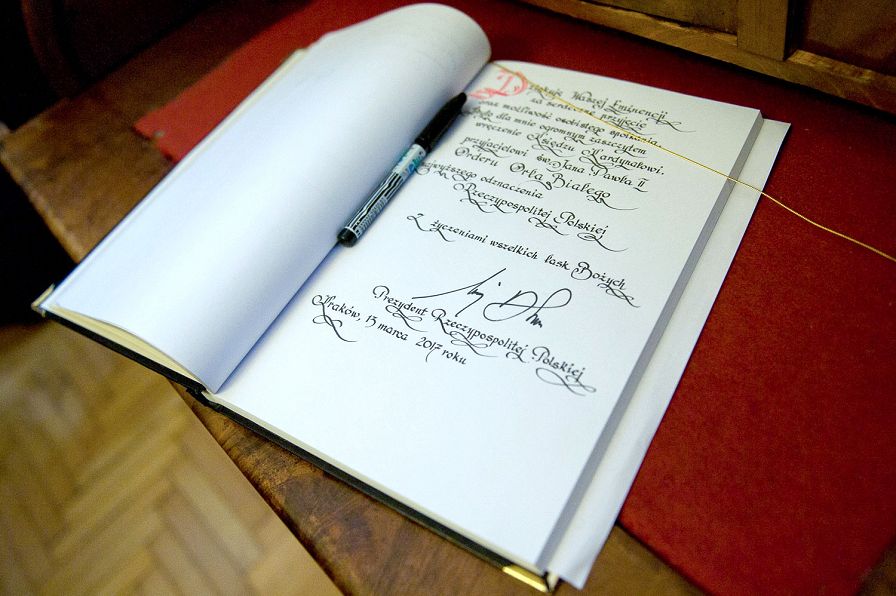 Dziękuję Waszej Eminencji
za serdeczne przyjęcie
oraz możliwość osobistego spotkania.
Było dla mnie ogromnym zaszczytem
wręczenie Księdzu Kardynałowi,
przyjacielowi św. Jana Pawła II
Orderu Orła Białego
najwyższego odznaczenia
Rzeczypospolitej Polskiej
Z życzeniami wszelkich łask Bożych
Prezydent Rzeczypospolitej Polskiej
Kraków, 13 marca 2017 roku